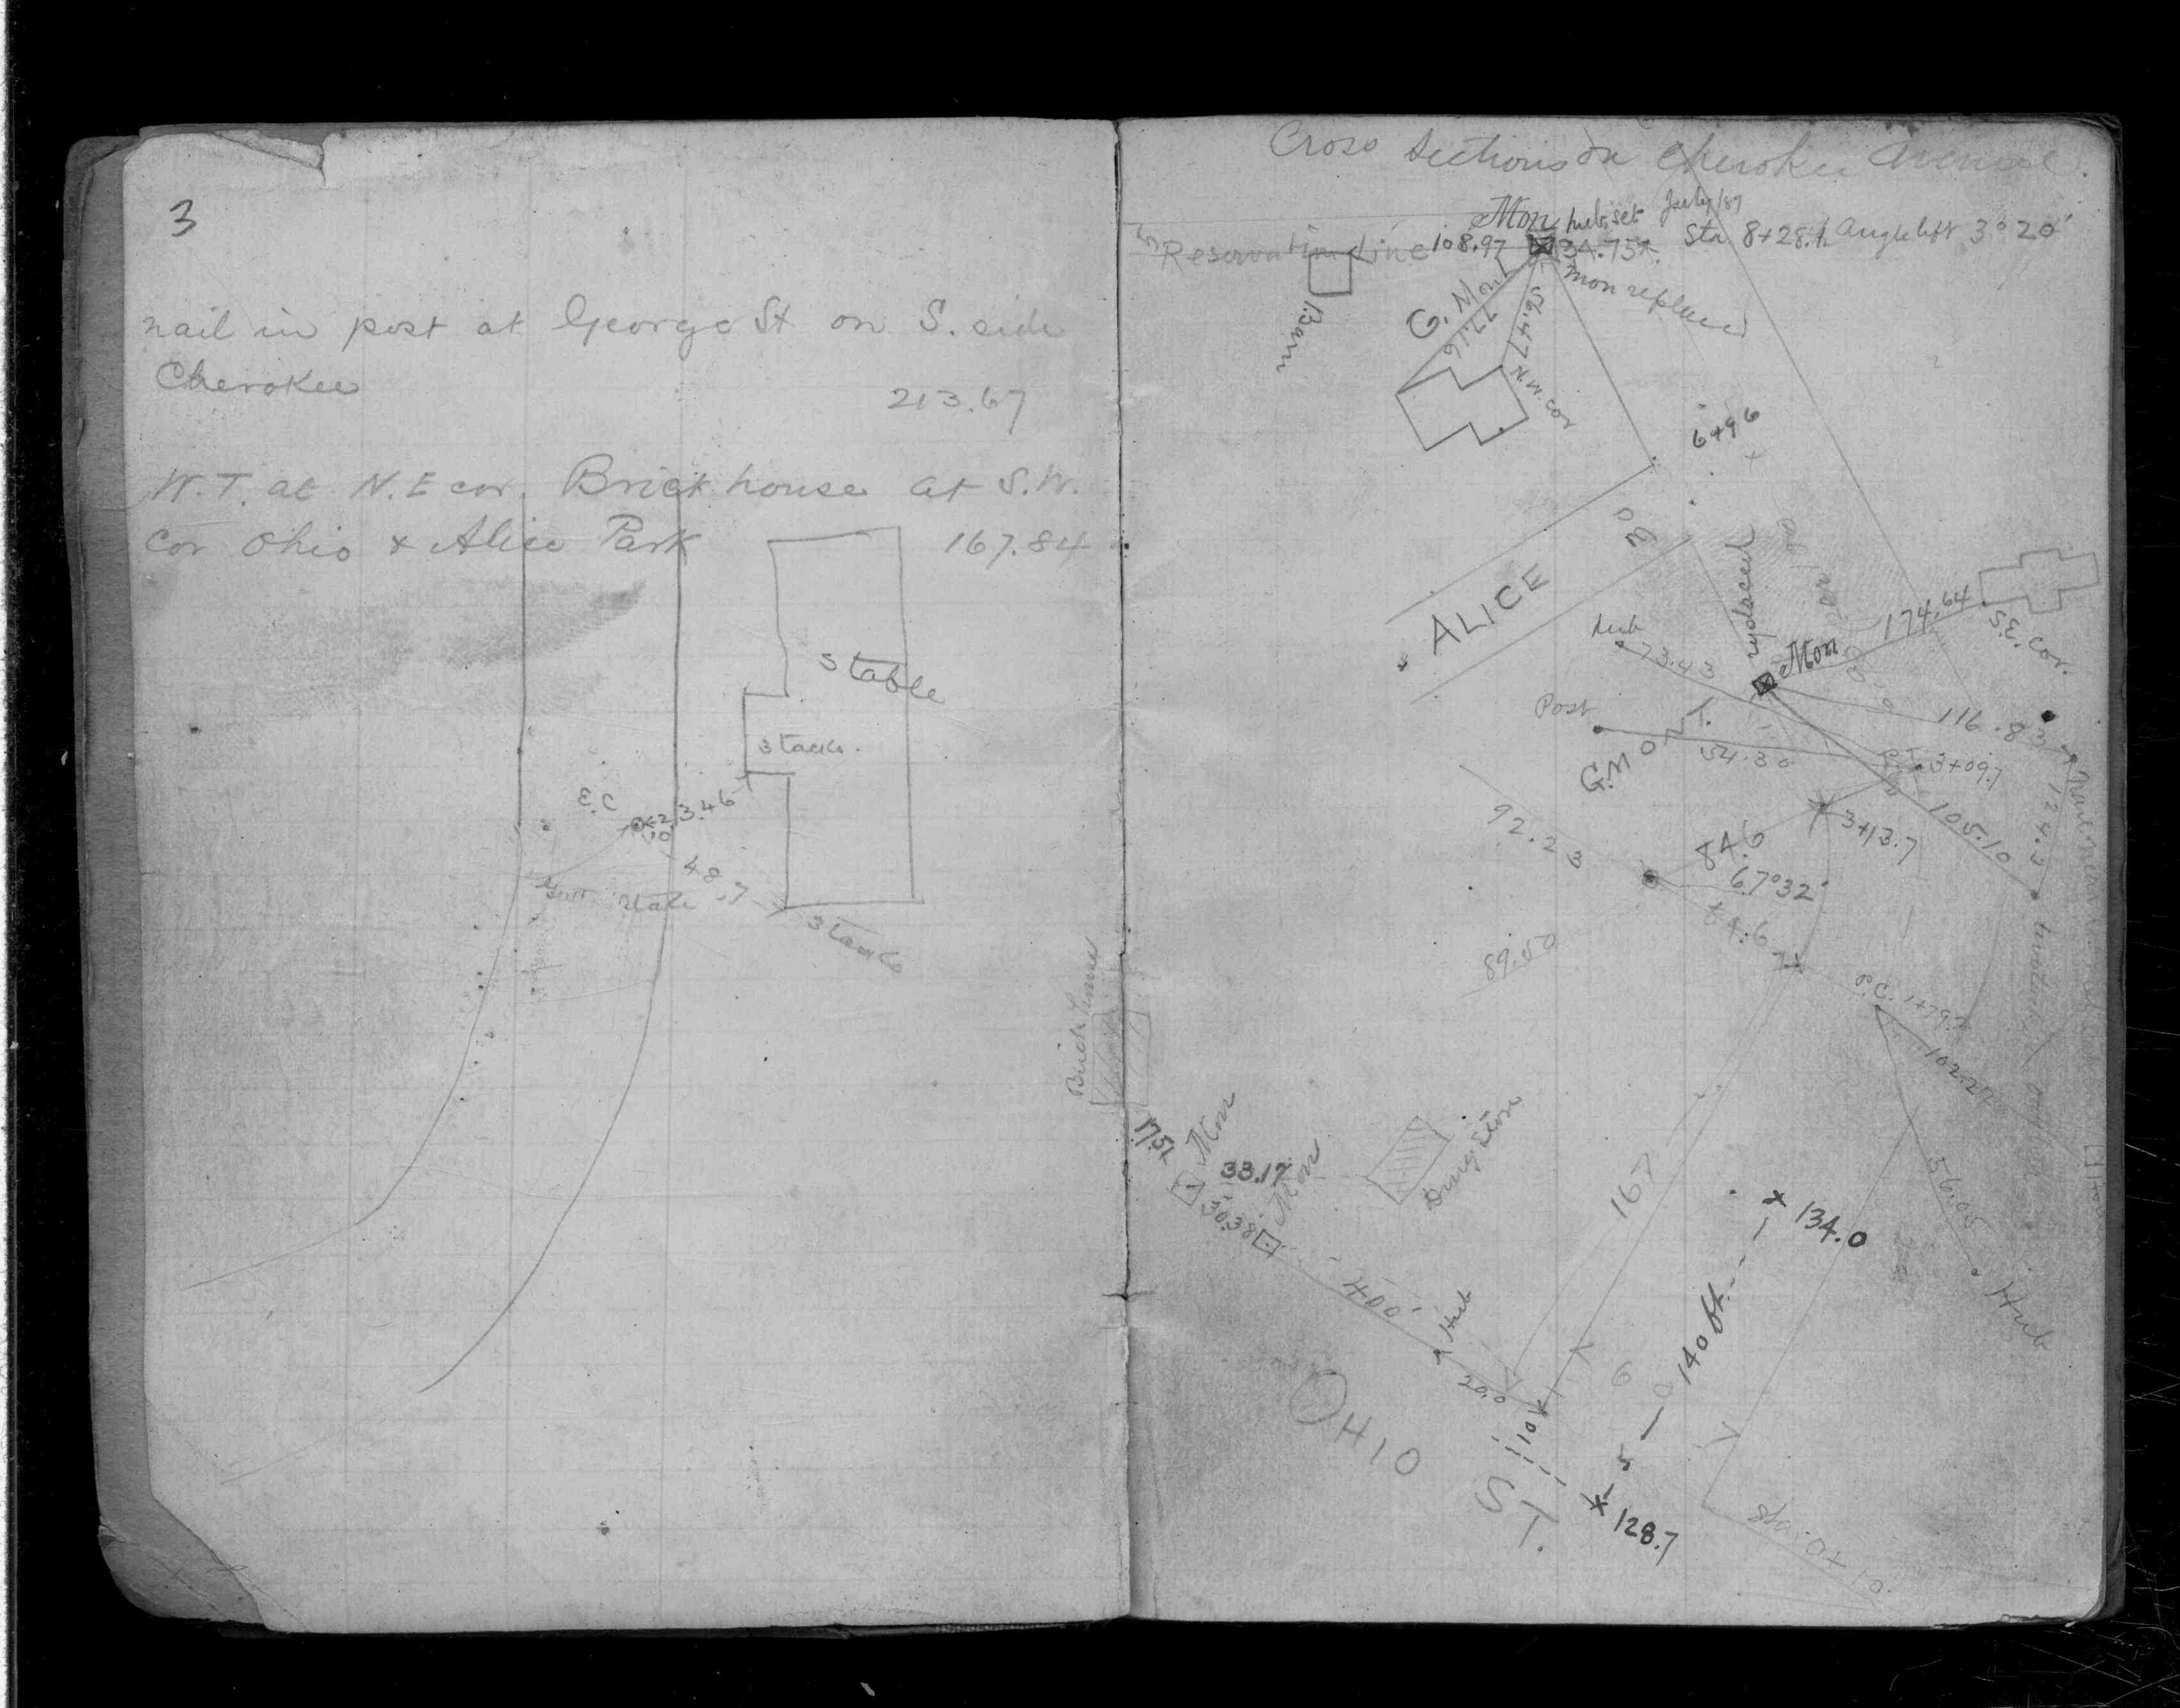 3
nail in post at George St on S. side
Cherokee
213.67
W.T. at N.E cor. Brick house at S.W.
cor Ohio & Alice Park 167.84
Stable
3 tacks.
E.C
23.46
10
48.7
3 tacks
Cross Sections on Cherokee Avenue.
Mon hub set July/89
Sta 8+28.1 Angle left 3°20'
Reservation Line 108.97
Mon replaced
Barn
G. Mon
77.16
56.47 N.W. cor
6+96
80
ALICE
replaced
Mon
174.64
S.E. cor.
Hub
73.43
Post
54.30
G.MONT.
116.8
P.T. 3+09.7
3+13.7
105.10
124.3
92.23
84.6
67°32'
84.6
89.50
P.C. 1+79.7
102.2
Brick
17.51
Mon
33.17
30.38
Mon
Drugstore
167
134.0
56.05
Hub
400'
Hub
20.0
140 ft.
OHIO
10
ST.
128.7
Sta. 0+10